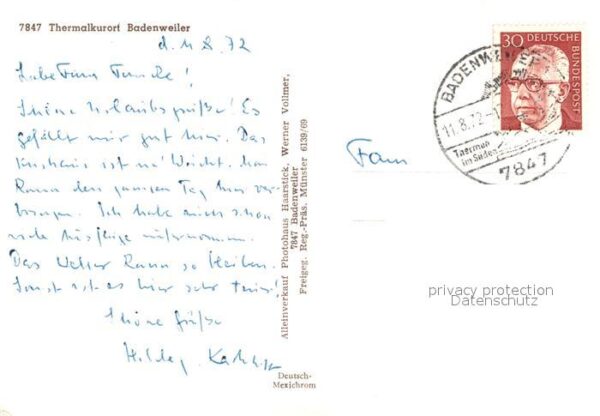 7847 Thermalkurort Badenweiler
d. 11 8. 72
Liebe Frau
Schöne Urlaubsgrüße! Es
gefällt mir gut hier. Das
Kurhaus ist 'ne Wucht. Man
kann den ganzen Tag hier ver-
bringen. Ich habe auch schon
viele Ausflüge unternommen.
Das Wetter kann so bleiben.
Sonst ist es hier sehr teuer!
Schöne Grüße
Alleinverkauf Photohaus Haarstick, Werner Vollmer,
7847 Badenweiler
Freigeg. Reg.-Präs. Münster 6139/69
Deutsch-
Mexichrom
Frau
30 DEUTSCHE
BUNDESPOST
BADENWEILER
11.8.72
Thermen
im Süden
7847
privacy protection
Datenschutz